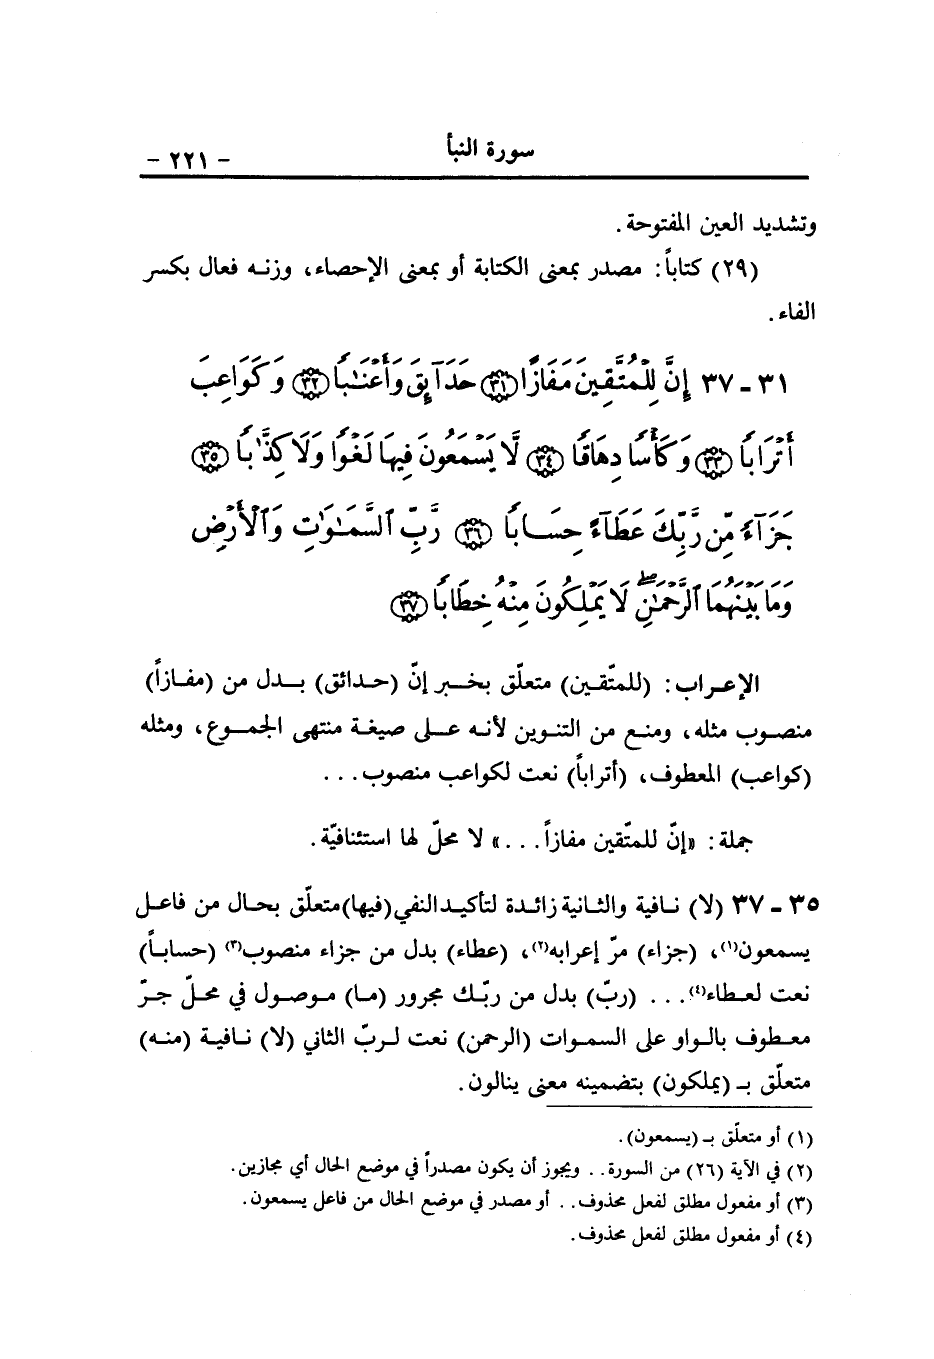 سورة النبأ
- ٢٢١ -
وتشديد العين المفتوحة .
(٢٩) كتاباً : مصدر بمعنى الكتابة أو بمعنى الإحصاء، وزنـه فعال بكسر
الفاء .
٣١ - ٣٧ إِنَّ لِلْمُتَّقِينَ مَفَازًا ٣١ حَدَآئِقَ وَأَعْنَٰبًا ٣٢ وَكَوَاعِبَ
أَتْرَابًا ٣٣ وَكَأْسًا دِهَاقًا ٣٤ لَّا يَسْمَعُونَ فِيهَا لَغْوًا وَلَا كِذَّٰبًا ٣٥
جَزَآءً مِّن رَّبِّكَ عَطَآءً حِسَابًا ٣٦ رَّبِّ ٱلسَّمَٰوَٰتِ وَٱلْأَرْضِ
وَمَا بَيْنَهُمَا ٱلرَّحْمَٰنِ ۖ لَا يَمْلِكُونَ مِنْهُ خِطَابًا ٣٧
الإعـراب : (للمتّقـين) متعلّق بخـبر إنّ (حـدائق) بـدل من (مفـازاً)
منصـوب مثله، ومنـع من التنـوين لأنـه عـلى صيغـة منتهى الجمـوع، ومثله
(كواعب) المعطوف، (أتراباً) نعت لكواعب منصوب . . .
جملة : «إنّ للمتّقين مفازاً . . .» لا محلّ لها استئنافيّة .
٣٥ - ٣٧ (لا) نـافية والثـانية زائـدة لتأكيـد النفي (فيها) متعلّق بحـال من فاعـل
يسمعون(١)، (جزاء) مرّ إعرابه(٢)، (عطاء) بدل من جزاء منصوب(٣) (حسابـاً)
نعت لعـطاء(٤) . . . (ربّ) بدل من ربّـك مجرور (مـا) مـوصول في محـلّ جـرّ
معـطوف بالـواو على السمـوات (الرحمن) نعت لـربّ الثاني (لا) نـافيـة (منـه)
متعلّق بـ (يملكون) بتضمينه معنى ينالون .
(١) أو متعلّق بـ (يسمعون).
(٢) في الآية (٢٦) من السورة . . ويجوز أن يكون مصدراً في موضع الحال أي مجازين .
(٣) أو مفعول مطلق لفعل محذوف . . أو مصدر في موضع الحال من فاعل يسمعون .
(٤) أو مفعول مطلق لفعل محذوف .